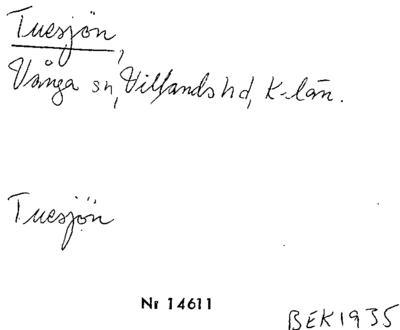 Tuesjön,
Vånga sn, Villands hd, K-län.
Tuesjön
Nr 14611
BEK1935